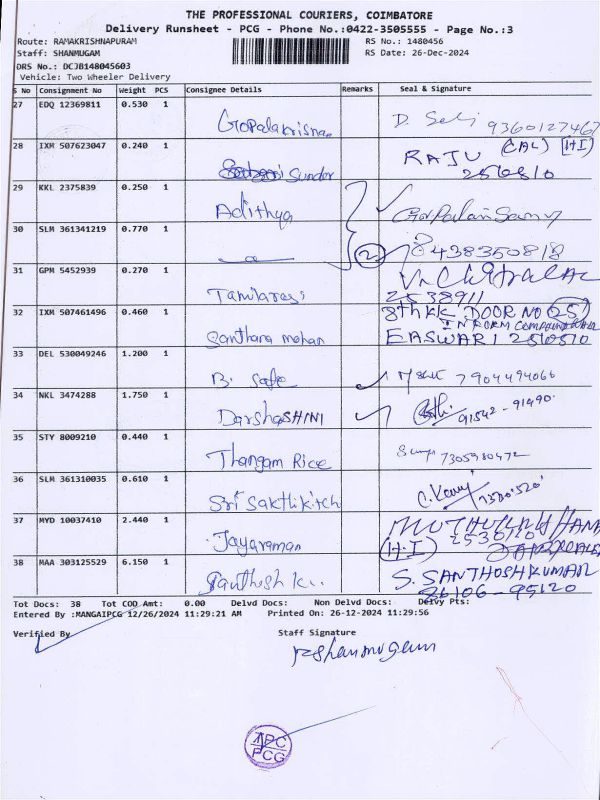 THE PROFESSIONAL COURIERS, COIMBATORE
Delivery Runsheet - PCG - Phone No.:0422-3505555 - Page No.:3
Route: RAMAKRISHNAPURAM
RS No.: 1480456
Staff: SHANMUGAM
RS Date: 26-Dec-2024
DRS No.: DCJB148045603
Vehicle: Two Wheeler Delivery
S No Consignment No Weight PCS Consignee Details Remarks Seal & Signature
27 EDQ 12369811 0.530 1
Gopalakrisnan D. Selvi 9360127467
28 IXM 507623047 0.240 1
Sundar RAJU (CAL) (H-I)
256810
29 KKL 2375839 0.250 1
Adithya Gopalan Samy
30 SLM 361341219 0.770 1
2 8438350818
31 GPM 5452939 0.270 1
Tamilarasi
2538911
32 IXM 507461496 0.460 1
8th KK DOOR NO 25
INFORM
Santhana mohan EASWARI
33 DEL 530049246 1.200 1
B. 7904494066
34 NKL 3474288 1.750 1
DarshaSHINI 91542-91490
35 STY 8009210 0.440 1
Thangam Rice 7305980472
36 SLM 361310035 0.610 1
Sri Sakthikitch
37 MYD 10037410 2.440 1
Jayaraman (H.I) 2530120
38 MAA 303125529 6.150 1
Santhosh K.. S. SANTHOSHKUMAR
Tot Docs: 38 Tot COD Amt: 0.00 Delvd Docs: Non Delvd Docs: Delvy Pts:
Entered By :MANGAIPCG 12/26/2024 11:29:21 AM Printed On: 26-12-2024 11:29:56
Verified By Staff Signature
P. Shanmugam
TPC
PCG